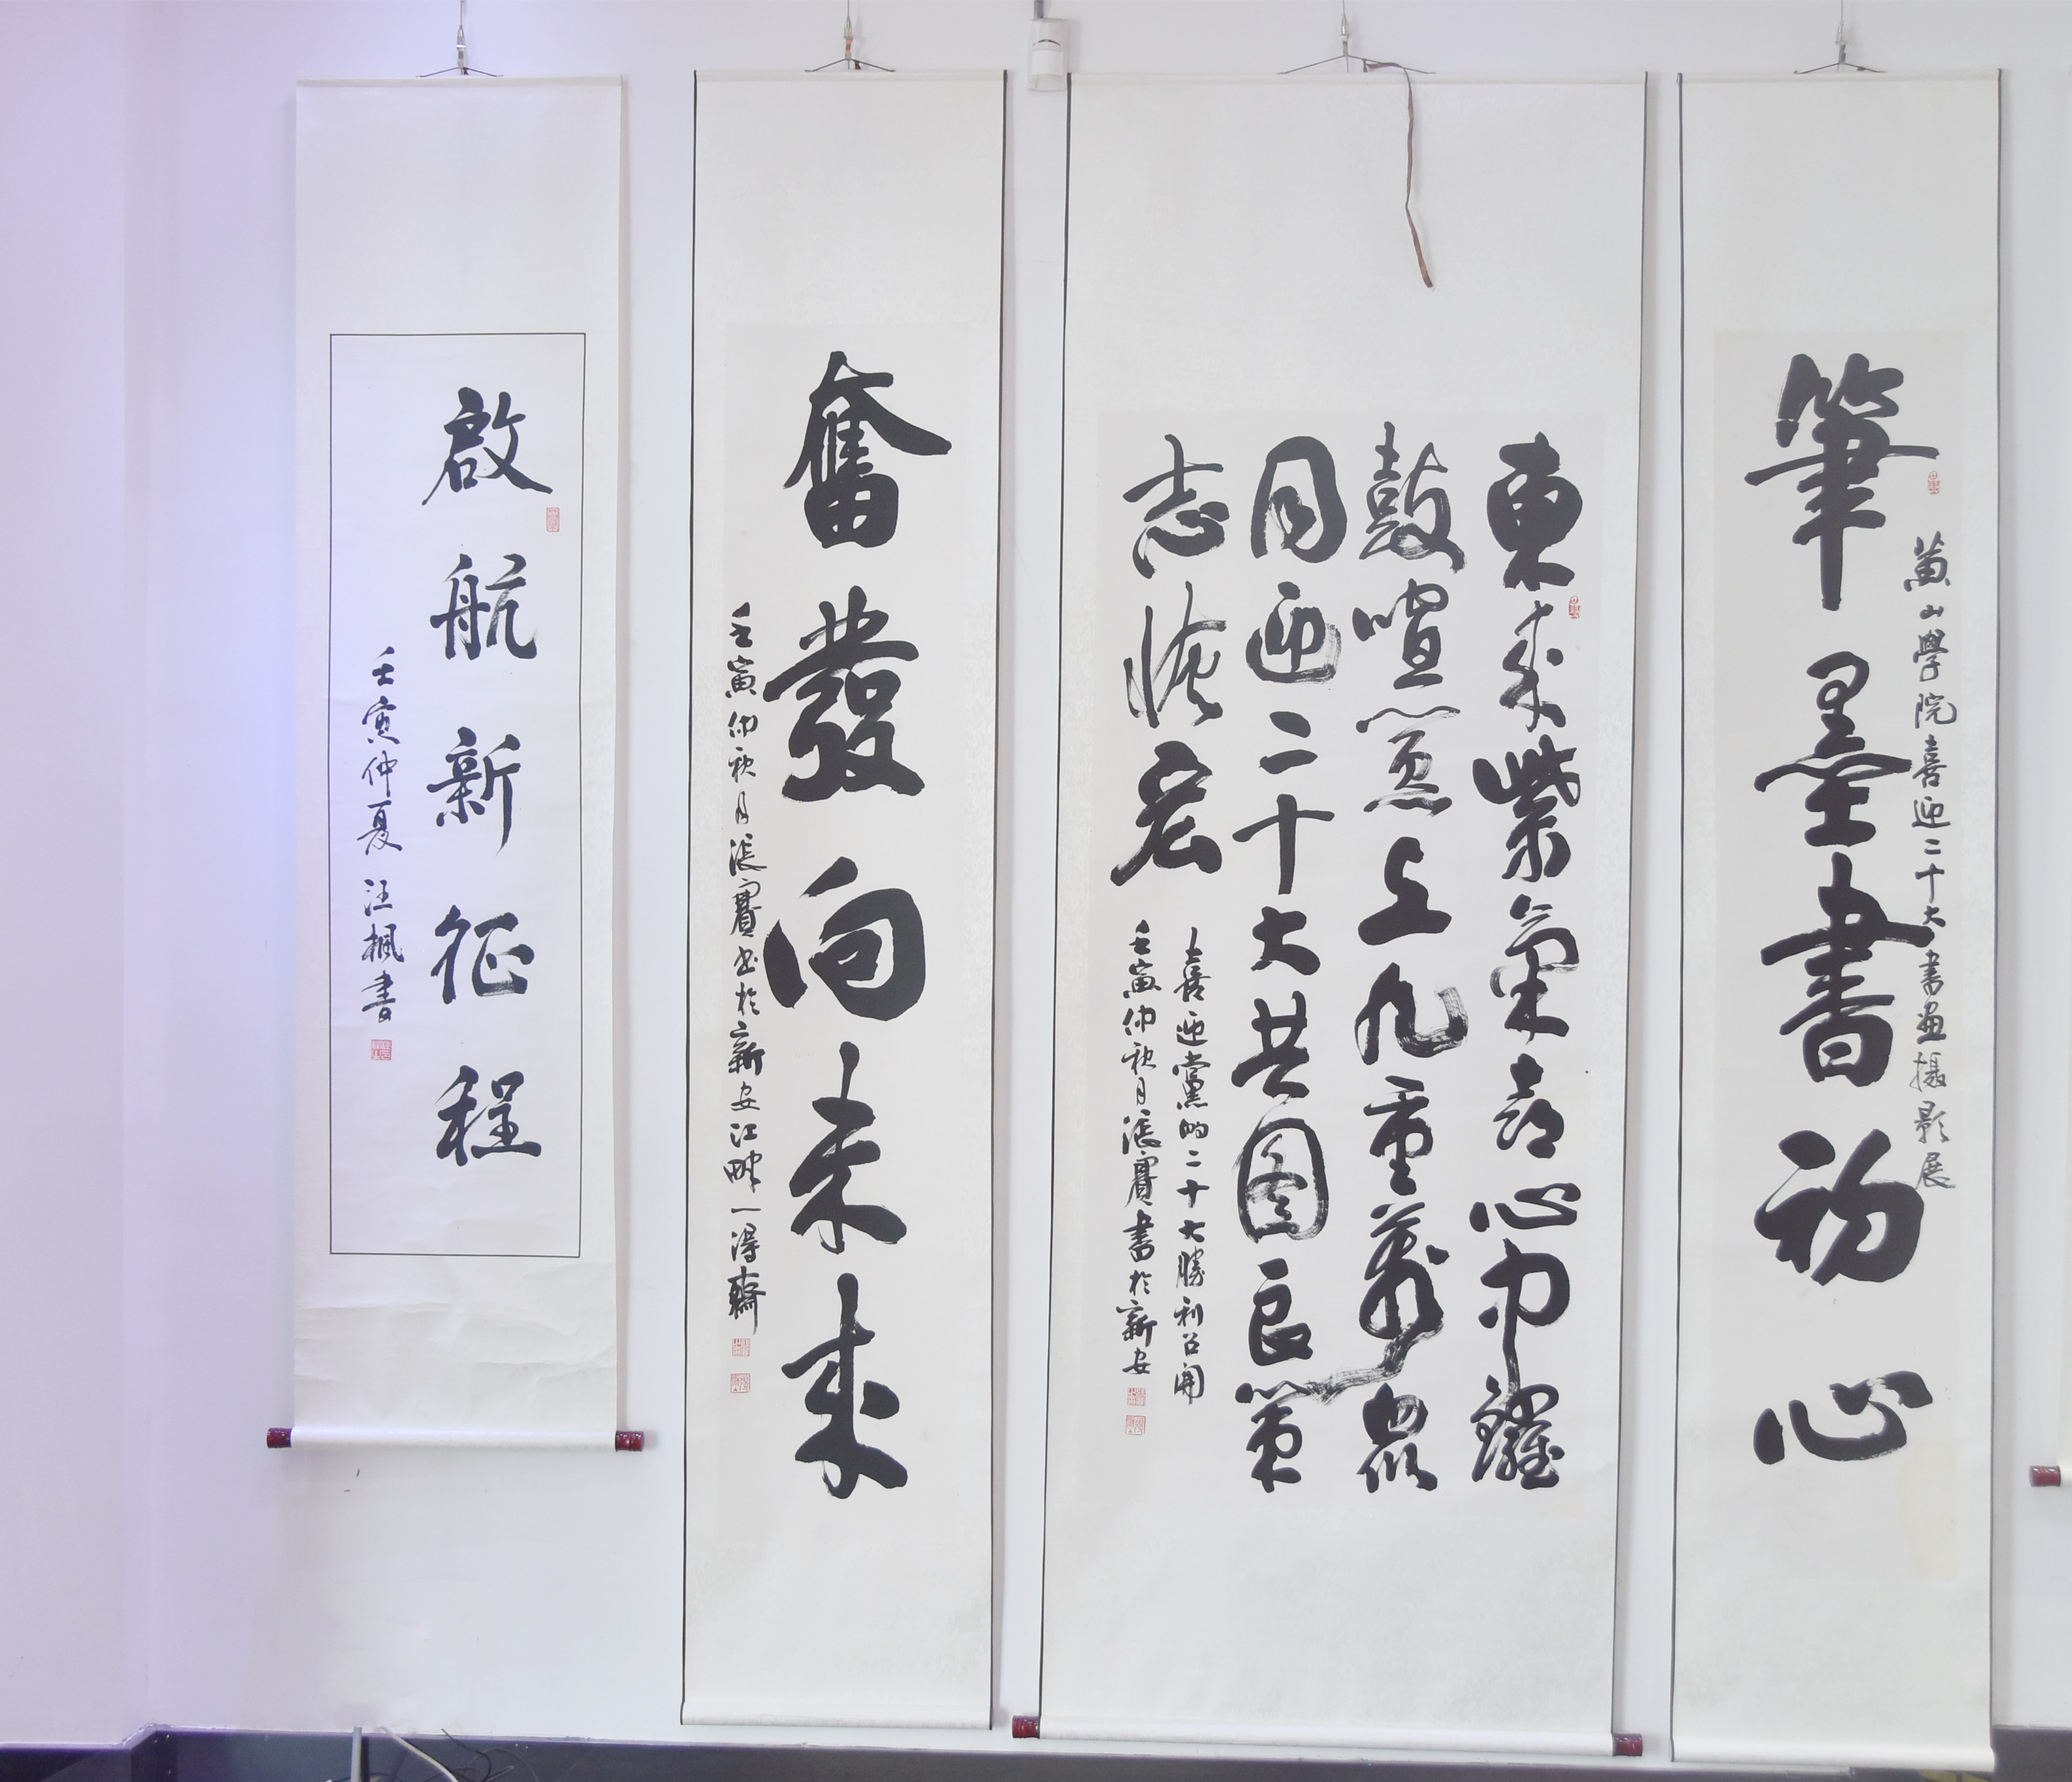 黄山學院喜迎二十大書画攝影展
筆墨書初心
東来紫氣喜心中鑼
鼓喧上九重萬眾
同迎二十大共圖良策
志恢宏
喜迎黨的二十大勝利召開
壬寅仲秋月張書於新安
奮發向未来
壬寅仲秋月張书於新安江畔一得齋
啟航新征程
壬寅仲夏 汪楓書